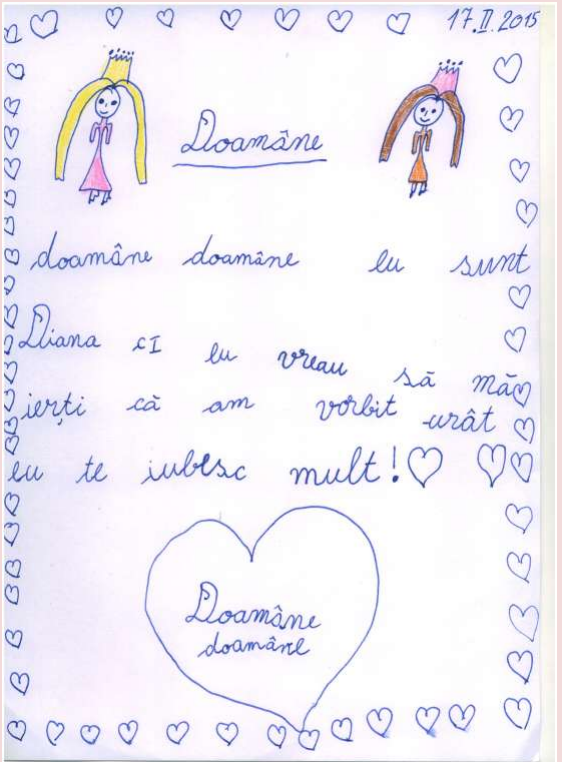 17.II.2015
Doamâne
doamâne doamâne eu sunt
Diana cI eu vreau să mă
ierți că am vorbit urât
eu te iubesc mult!
Doamâne
doamâne